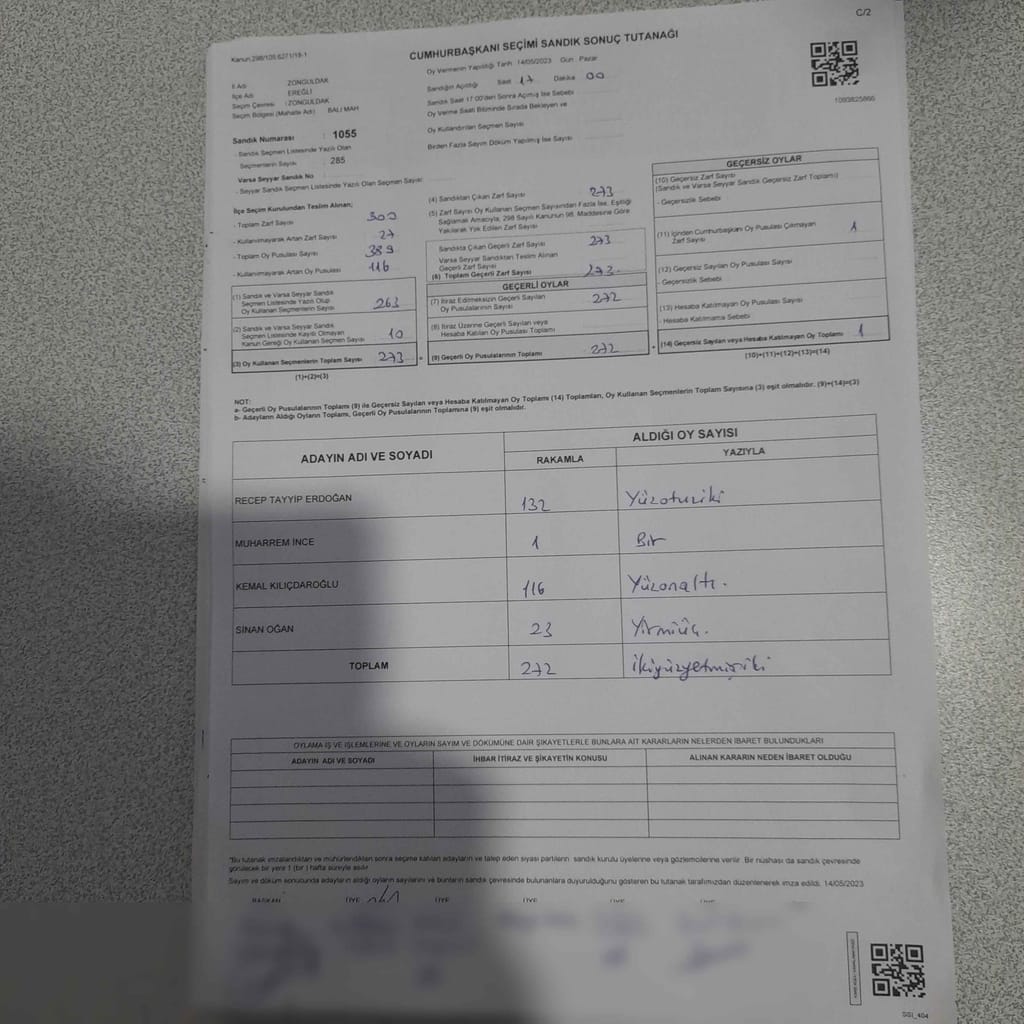 C/2
Kanun 298/105 6271/18-1
CUMHURBAŞKANI SEÇİMİ SANDIK SONUÇ TUTANAĞI
1093825866
İl Adı ZONGULDAK
İlçe Adı EREĞLİ
Seçim Çevresi : ZONGULDAK
Seçim Bölgesi (Mahalle Adı) BALI MAH
Sandık Numarası : 1055
- Sandık Seçmen Listesinde Yazılı Olan
Seçmenlerin Sayısı : 285
Varsa Seyyar Sandık No
- Seyyar Sandık Seçmen Listesinde Yazılı Olan Seçmen Sayısı:
Oy Vermenin Yapıldığı Tarih 14/05/2023 Gün Pazar
Sandığın Açıldığı Saat 17 Dakika 00
Sandık Saat 17.00'den Sonra Açılmış İse Sebebi
Oy Verme Saati Bitiminde Sırada Bekleyen ve
Oy Kullandırılan Seçmen Sayısı
Birden Fazla Sayım Döküm Yapılmış İse Sayısı
İlçe Seçim Kurulundan Teslim Alınan;
- Toplam Zarf Sayısı 300
- Kullanılmayarak Artan Zarf Sayısı 27
- Toplam Oy Pusulası Sayısı 389
- Kullanılmayarak Artan Oy Pusulası 116
(1) Sandık ve Varsa Seyyar Sandık
Seçmen Listesinde Yazılı Olup
Oy Kullanan Seçmenlerin Sayısı 263
(2) Sandık ve Varsa Seyyar Sandık
Seçmen Listesinde Kayıtlı Olmayan
Kanun Gereği Oy Kullanan Seçmen Sayısı 10
(3) Oy Kullanan Seçmenlerin Toplam Sayısı 273
(1)+(2)=(3)
(4) Sandıktan Çıkan Zarf Sayısı 273
(5) Zarf Sayısı Oy Kullanan Seçmen Sayısından Fazla İse, Eşitliği
Sağlamak Amacıyla, 298 Sayılı Kanunun 98. Maddesine Göre
Yakılarak Yok Edilen Zarf Sayısı
Sandıkta Çıkan Geçerli Zarf Sayısı 273
Varsa Seyyar Sandıktan Teslim Alınan
Geçerli Zarf Sayısı
(6) Toplam Geçerli Zarf Sayısı 273
GEÇERLİ OYLAR
(7) İtiraz Edilmeksizin Geçerli Sayılan
Oy Pusulalarının Sayısı 272
(8) İtiraz Üzerine Geçerli Sayılan veya
Hesaba Katılan Oy Pusulası Toplamı
(9) Geçerli Oy Pusulalarının Toplamı 272
GEÇERSİZ OYLAR
(10) Geçersiz Zarf Sayısı
(Sandık ve Varsa Seyyar Sandık Geçersiz Zarf Toplamı)
- Geçersizlik Sebebi
(11) İçinden Cumhurbaşkanı Oy Pusulası Çıkmayan
Zarf Sayısı 1
(12) Geçersiz Sayılan Oy Pusulası Sayısı
- Geçersizlik Sebebi
(13) Hesaba Katılmayan Oy Pusulası Sayısı
- Hesaba Katılmama Sebebi
(14) Geçersiz Sayılan veya Hesaba Katılmayan Oy Toplamı 1
(10)+(11)+(12)+(13)=(14)
NOT:
a- Geçerli Oy Pusulalarının Toplamı (9) ile Geçersiz Sayılan veya Hesaba Katılmayan Oy Toplamı (14) Toplamları, Oy Kullanan Seçmenlerin Toplam Sayısına (3) eşit olmalıdır. (9)+(14)=(3)
b- Adayların Aldığı Oyların Toplamı, Geçerli Oy Pusulalarının Toplamına (9) eşit olmalıdır.
ADAYIN ADI VE SOYADI ALDIĞI OY SAYISI
RAKAMLA YAZIYLA
RECEP TAYYİP ERDOĞAN 132 Yüzotuziki
MUHARREM İNCE 1 Bir
KEMAL KILIÇDAROĞLU 116 Yüzonaltı.
SİNAN OĞAN 23 Yirmiüç.
TOPLAM 272 İkiyüzyetmişiki
OYLAMA İŞ VE İŞLEMLERİNE VE OYLARIN SAYIM VE DÖKÜMÜNE DAİR ŞİKAYETLERLE BUNLARA AİT KARARLARIN NELERDEN İBARET BULUNDUKLARI
ADAYIN ADI VE SOYADI İHBAR İTİRAZ VE ŞİKAYETİN KONUSU ALINAN KARARIN NEDEN İBARET OLDUĞU
"Bu tutanak imzalandıktan ve mühürlendikten sonra seçime katılan adayların ve talep eden siyasi partilerin sandık kurulu üyelerine veya gözlemcilerine verilir. Bir nüshası da sandık çevresinde
görülecek bir yere 1 (bir ) hafta süreyle asılır.
Sayım ve döküm sonucunda adayların aldığı oyların sayılarını ve bunların sandık çevresinde bulunanlara duyurulduğunu gösteren bu tutanak tarafımızdan düzenlenerek imza edildi. 14/05/2023
BAŞKAN ÜYE ÜYE ÜYE ÜYE ÜYE
SSI_404